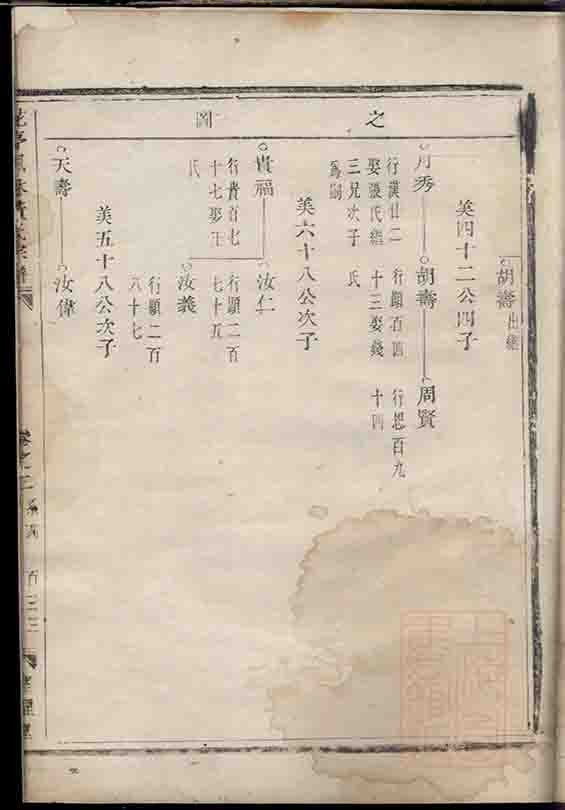 之 圖
胡壽 出繼
美四十二公四子
月秀 行漢廿二
娶張氏繼
三兄次子
爲嗣
胡壽 行顯百四
十三娶錢
氏
周賢 行恩百九
十四
美六十八公次子
貴福 行貴百七
十七娶王
氏
汝仁 行顯二百
七十五
汝義
美五十八公次子
天壽
汝偉 行顯二百
八十七
卷之二 系圖